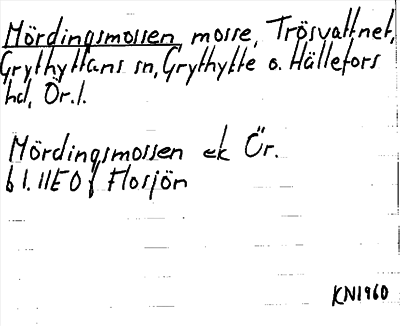 Mördingsmossen, mosse, Trösvattnet,
Grythyttans sn, Grythytte o. Hällefors
hd, Ör. l.
Mördingsmossen ek Ör.
bl. 11E 0f Flosjön
KN1960